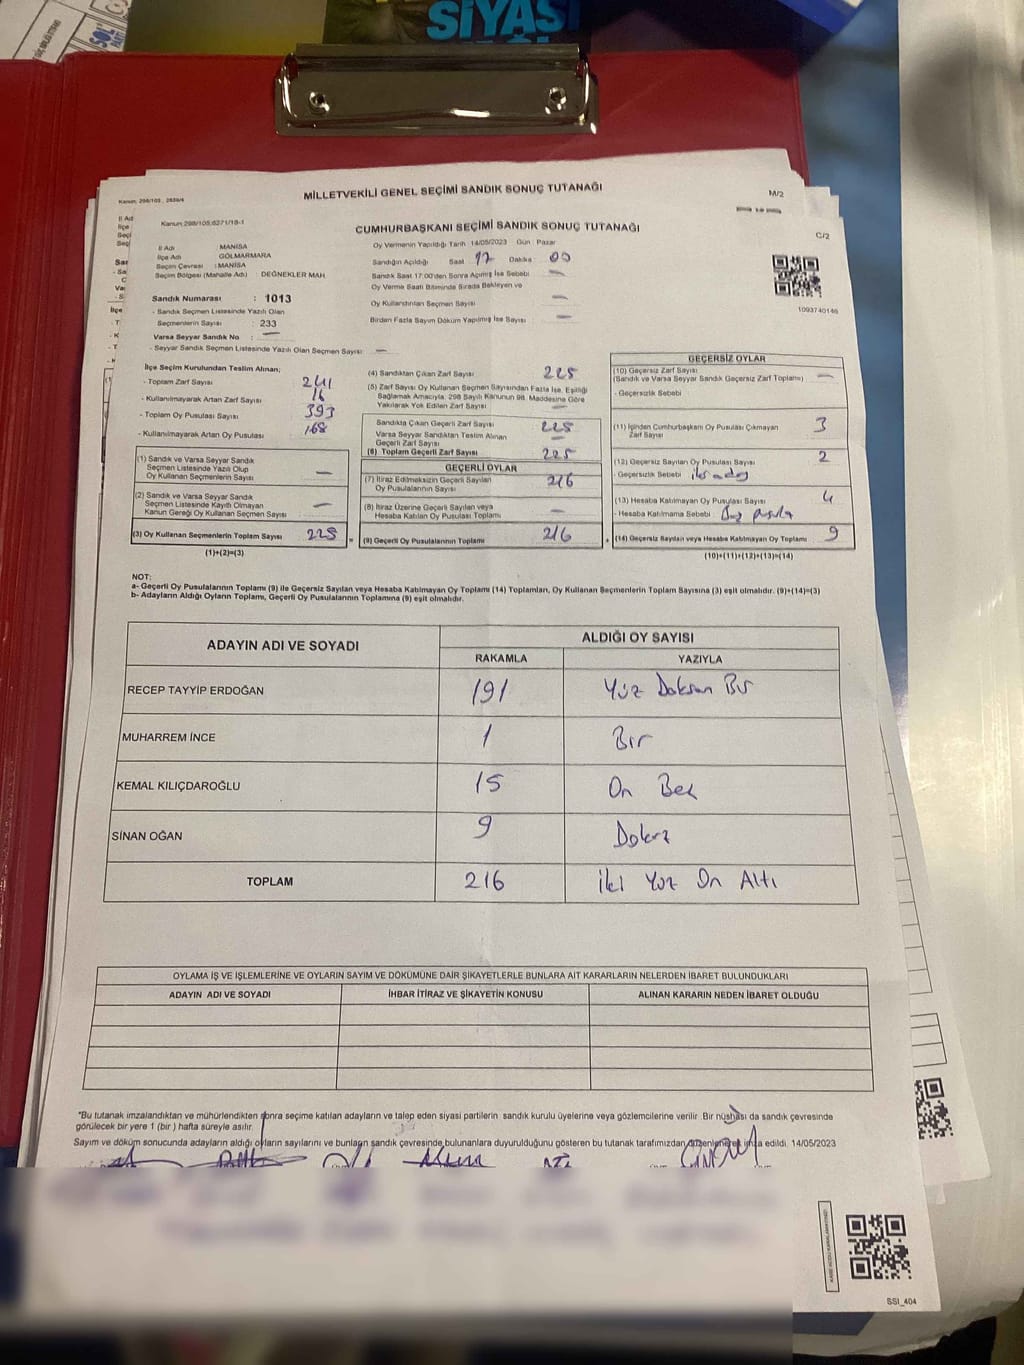 SİYASİ
SOL
PARTİ
MİLLETVEKİLİ GENEL SEÇİMİ SANDIK SONUÇ TUTANAĞI
M/2
Kanun: 298/105
Kanun 298/105;6271/18-1
CUMHURBAŞKANI SEÇİMİ SANDIK SONUÇ TUTANAĞI
C/2
İl Adı : MANİSA
İlçe Adı : GÖLMARMARA
Seçim Çevresi : MANİSA
Seçim Bölgesi (Mahalle Adı) : DEĞNEKLER MAH.
Sandık Numarası : 1013
- Sandık Seçmen Listesinde Yazılı Olan
Seçmenlerin Sayısı : 233
Varsa Seyyar Sandık No : —
- Seyyar Sandık Seçmen Listesinde Yazılı Olan Seçmen Sayısı : —
Oy Vermenin Yapıldığı Tarih 14/05/2023 Gün : Pazar
Sandığın Açıldığı Saat 17 Dakika : 00
Sandık Saat 17:00'den Sonra Açılmış İse Sebebi —
Oy Verme Saati Bitiminde Sırada Bekleyen ve
Oy Kullandırılan Seçmen Sayısı —
Birden Fazla Sayım Döküm Yapılmış İse Sayısı : —
1093740146
İlçe Seçim Kurulundan Teslim Alınan;
- Toplam Zarf Sayısı 241
- Kullanılmayarak Artan Zarf Sayısı 16
- Toplam Oy Pusulası Sayısı 393
- Kullanılmayarak Artan Oy Pusulası 168
(1) Sandık ve Varsa Seyyar Sandık
Seçmen Listesinde Yazılı Olup
Oy Kullanan Seçmen Sayısı —
(2) Sandık ve Varsa Seyyar Sandık
Seçmen Listesinde Kayıtlı Olmayan
Kanun Gereği Oy Kullanan Seçmen Sayısı —
(3) Oy Kullanan Seçmenlerin Toplam Sayısı 225
(1)+(2)=(3)
(4) Sandıktan Çıkan Zarf Sayısı 225
(5) Zarf Sayısı Oy Kullanan Seçmen Sayısından Fazla İse, Eşitliği
Sağlamak Amacıyla, 298 Sayılı Kanunun 98. Maddesine Göre
Yakılarak Yok Edilen Zarf Sayısı —
Sandıkta Çıkan Geçerli Zarf Sayısı 225
Varsa Seyyar Sandıktan Teslim Alınan
Geçerli Zarf Sayısı —
(6) Toplam Geçerli Zarf Sayısı 225
GEÇERLİ OYLAR
(7) İtiraz Edilmeksizin Geçerli Sayılan
Oy Pusulalarının Sayısı 216
(8) İtiraz Üzerine Geçerli Sayılan veya
Hesaba Katılan Oy Pusulası Toplamı —
(9) Geçerli Oy Pusulalarının Toplamı 216
GEÇERSİZ OYLAR
(10) Geçersiz Zarf Sayısı
(Sandık ve Varsa Seyyar Sandık Geçersiz Zarf Toplamı) —
- Geçersizlik Sebebi
(11) İçinden Cumhurbaşkanı Oy Pusulası Çıkmayan
Zarf Sayısı 3
(12) Geçersiz Sayılan Oy Pusulası Sayısı 2
- Geçersizlik Sebebi iki aday
(13) Hesaba Katılmayan Oy Pusulası Sayısı 4
- Hesaba Katılmama Sebebi Boş pusula
(14) Geçersiz Sayılan veya Hesaba Katılmayan Oy Toplamı 9
(10)+(11)+(12)+(13)=(14)
NOT:
a- Geçerli Oy Pusulalarının Toplamı (9) ile Geçersiz Sayılan veya Hesaba Katılmayan Oy Toplamı (14) Toplamları, Oy Kullanan Seçmenlerin Toplam Sayısına (3) eşit olmalıdır. (9)+(14)=(3)
b- Adayların Aldığı Oyların Toplamı, Geçerli Oy Pusulalarının Toplamına (9) eşit olmalıdır.
ADAYIN ADI VE SOYADI
ALDIĞI OY SAYISI
RAKAMLA YAZIYLA
RECEP TAYYİP ERDOĞAN 191 Yüz Doksan Bir
MUHARREM İNCE 1 Bir
KEMAL KILIÇDAROĞLU 15 On Beş
SİNAN OĞAN 9 Dokuz
TOPLAM 216 İki Yüz On Altı
OYLAMA İŞ VE İŞLEMLERİNE VE OYLARIN SAYIM VE DÖKÜMÜNE DAİR ŞİKAYETLERLE BUNLARA AİT KARARLARIN NELERDEN İBARET BULUNDUKLARI
ADAYIN ADI VE SOYADI İHBAR İTİRAZ VE ŞİKAYETİN KONUSU ALINAN KARARIN NEDEN İBARET OLDUĞU
"Bu tutanak imzalandıktan ve mühürlendikten sonra seçime katılan adayların ve talep eden siyasi partilerin sandık kurulu üyelerine veya gözlemcilerine verilir. Bir nüshası da sandık çevresinde
görülecek bir yere 1 (bir) hafta süreyle asılır.
Sayım ve döküm sonucunda adayların aldığı oyların sayılarını ve bunların sandık çevresinde bulunanlara duyurulduğunu gösteren bu tutanak tarafımızdan düzenlenerek imza edildi. 14/05/2023
SSI_404